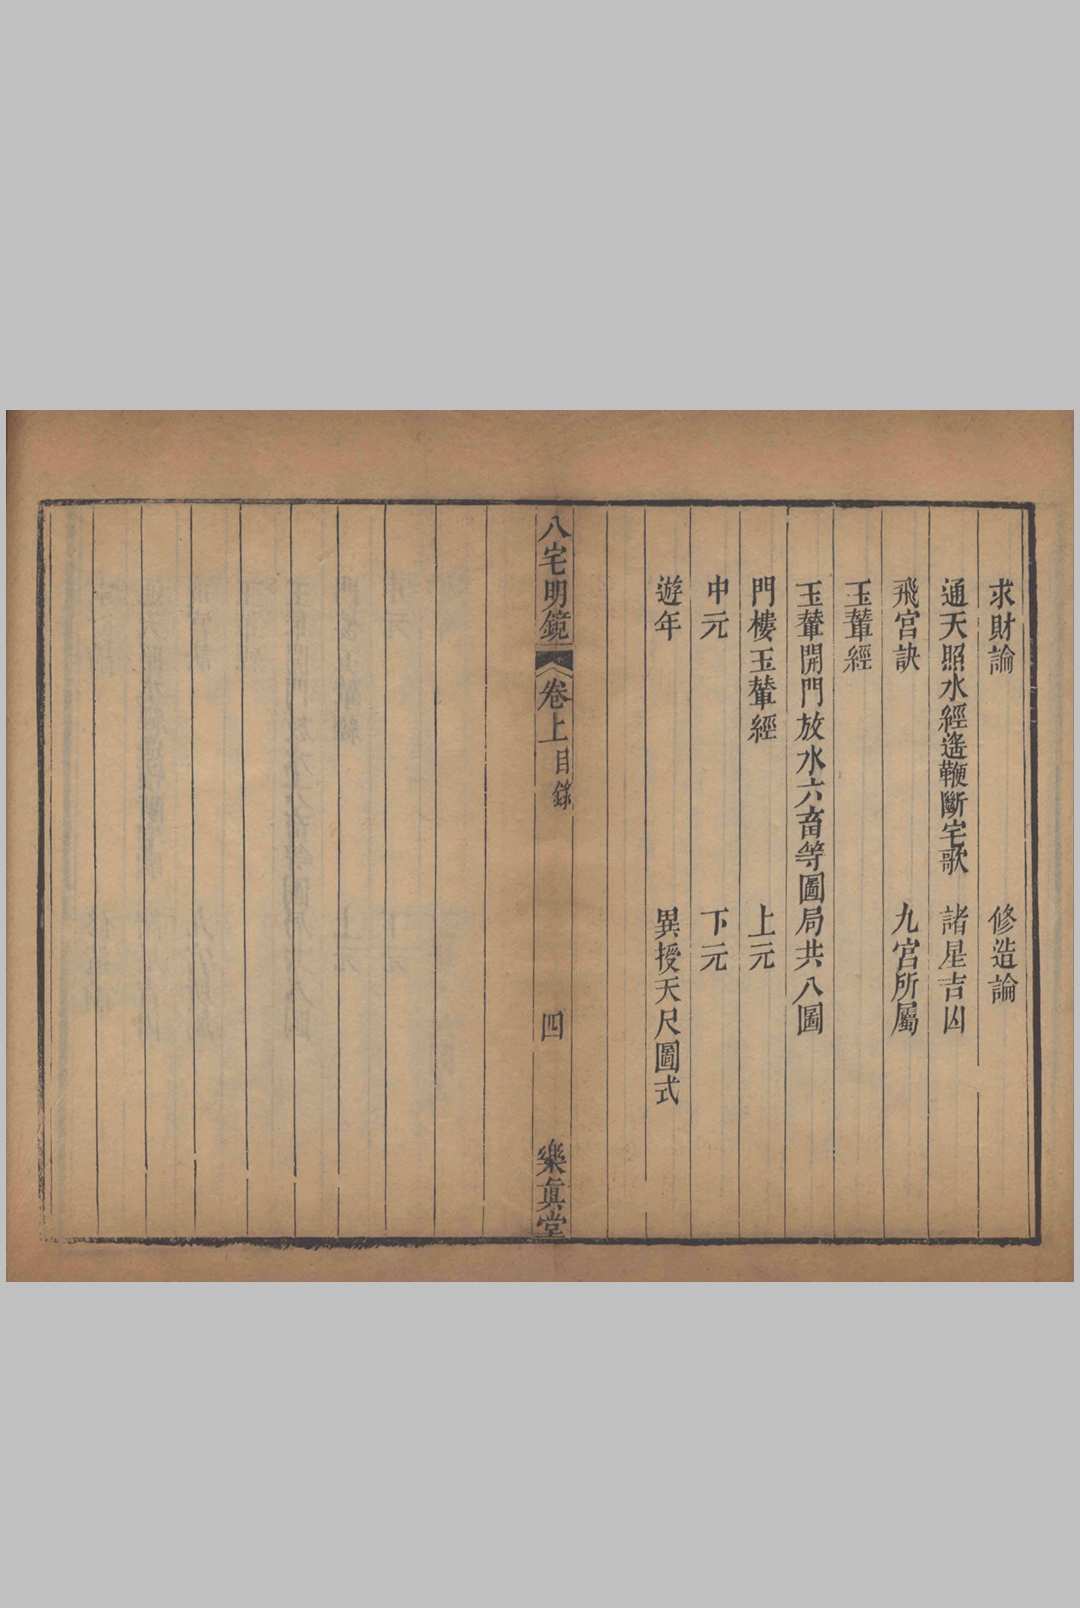 求財論 修造論
通天照水經遙鞭斷宅歌 諸星吉凶
飛宮訣 九宮所屬
玉輦經
玉輦開門放水六畜等圖局共八圖
門樓玉輦經 上元
中元 下元
遊年 異授天尺圖式
八宅明鏡 卷上目錄 四 樂真堂